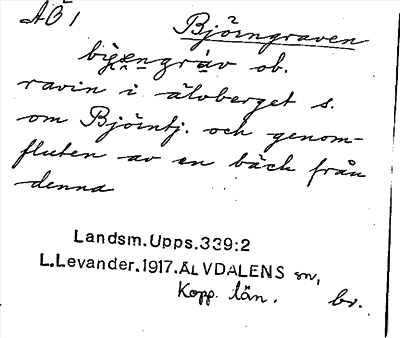 ÄÖ 1
Björngraven
bi̯ȩngrȧv ob.
ravin i älvberget s.
om Björntj. och genom-
fluten av en bäck från
denna
Landsm. Upps. 339:2
L. Levander. 1917. ÄLVDALENS sn,
Kopp. län.
br.